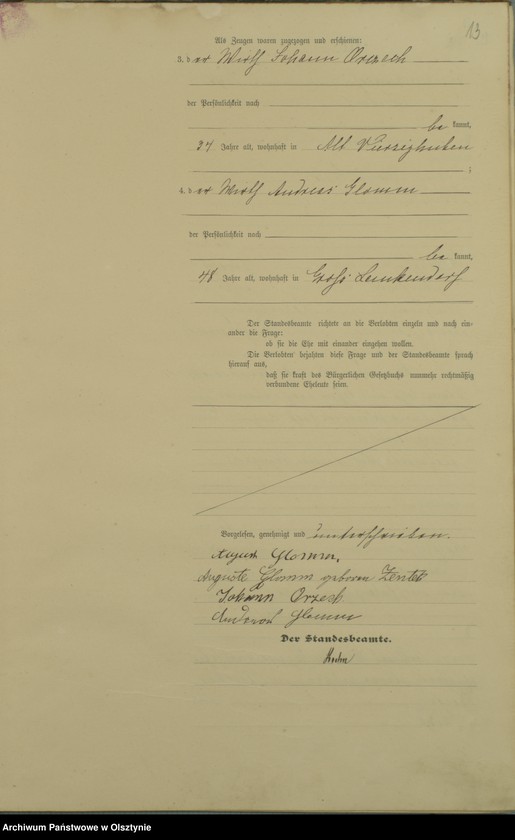 13
Als Zeugen waren zugezogen und erschienen:
3. der Wirth Johann Orzech
der Persönlichkeit nach
be kannt,
37 Jahre alt, wohnhaft in Alt Vierzighuben
;
4. der Wirth Andreas Glomm
der Persönlichkeit nach
be kannt,
48 Jahre alt, wohnhaft in Groß Lemkendorf
Der Standesbeamte richtete an die Verlobten einzeln und nach ein-
ander die Frage:
ob sie die Ehe mit einander eingehen wollen.
Die Verlobten bejahten diese Frage und der Standesbeamte sprach
hierauf aus,
daß sie kraft des Bürgerlichen Gesetzbuchs nunmehr rechtmäßig
verbundene Eheleute seien.
Vorgelesen, genehmigt und unterschrieben.
August Glomm.
Auguste Glomm geboren
Johann Orzech
Andreas Glomm
Der Standesbeamte.
Archiwum Państwowe w Olsztynie